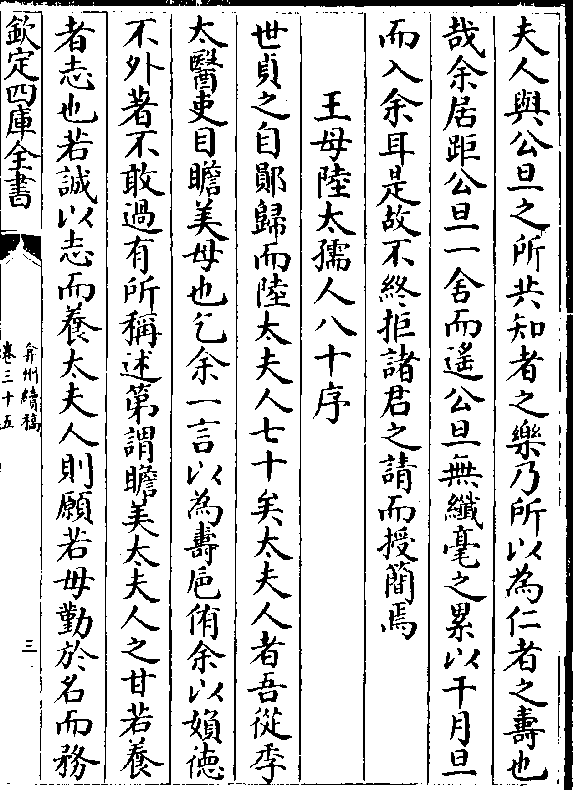 夫人與公旦之所共知者之樂乃所以為仁者之壽也
哉余居距公旦一舍而遙公旦無纖毫之累以干月旦
而入余耳是故不終拒諸君之請而授簡焉
王母陸太孺人八十序
世貞之自鄖歸而陸太夫人七十矣太夫人者吾從季
太醫吏目瞻美母也乞余一言以為壽巵侑余以媍徳
不外著不敢過有所稱述第謂瞻美太夫人之甘若養
者志也若誠以志而養太夫人則願若毋勤於名而務
欽定四庫全書
弇州續稿
卷三十五
三